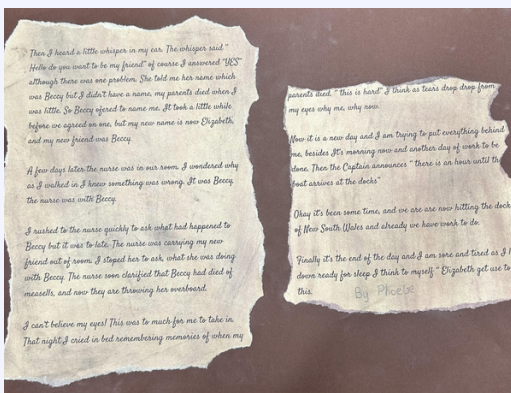 Then I heard a little whisper in my ear. The whisper said "
Hello do you want to be my friend" of course I answered "YES"
although there was one problem. She told me her name which
was Beccy but I didn't have a name, my parents died when I
was little. So Beccy ofered to name me. It took a little while
before we agreed on one, but my new name is now Elizabeth,
and my new friend was Beccy.
A few days later the nurse was in our room. I wondered why
as I walked in I knew something was wrong. It was Beccy,
the nurse was with Beccy.
I rushed to the nurse quickly to ask what had happened to
Beccy but it was to late. The nurse was carrying my new
friend out of room. I stoped her to ask, what she was doing
with Beccy. The nurse soon clarified that Beccy had died of
measells, and now they are throwing her overboard.
I can't believe my eyes! This was to much for me to take in.
That night I cried in bed remembering memories of when my
parents died. " this is hard" I think as tears drop drop from
my eyes why me, why now.
Now it is a new day and I am trying to put everything behind
me, besides It's morning now and another day of work to be
done. Then the Captain announces " there is an hour until the
boat arrives at the docks"
Okay it's been some time, and we are are now hitting the dock
of New South Wales and already we have work to do.
Finally it's the end of the day and I am sore and tired as I
down ready for sleep I think to myself " Elizabeth get use to
this.
By Phoebe